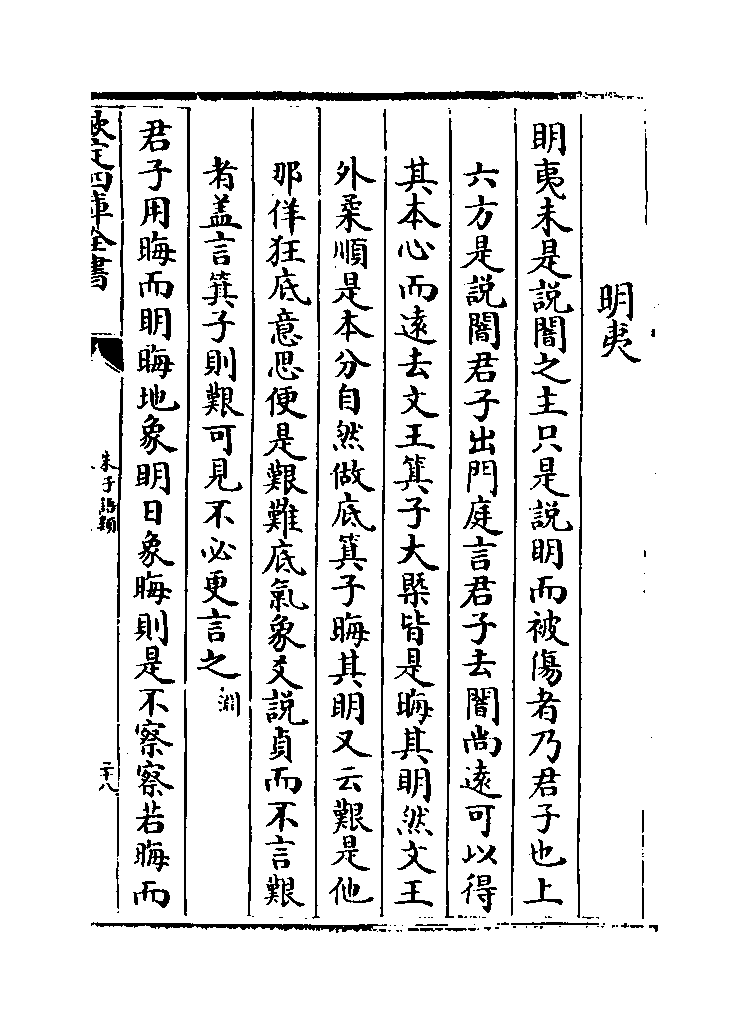 明夷
明夷未是說闇之主只是說明而被傷者乃君子也上
六方是說闇君子出門庭言君子去闇尚遠可以得
其本心而遠去文王箕子大槩皆是晦其明然文王
外柔順是本分自然做底箕子晦其明又云艱是他
那佯狂底意思便是艱難底氣象爻說貞而不言艱
者盖言箕子則艱可見不必更言之淵
君子用晦而明晦地象明日象晦則是不察察若晦而
欽定四庫全書
朱子語類
二十八